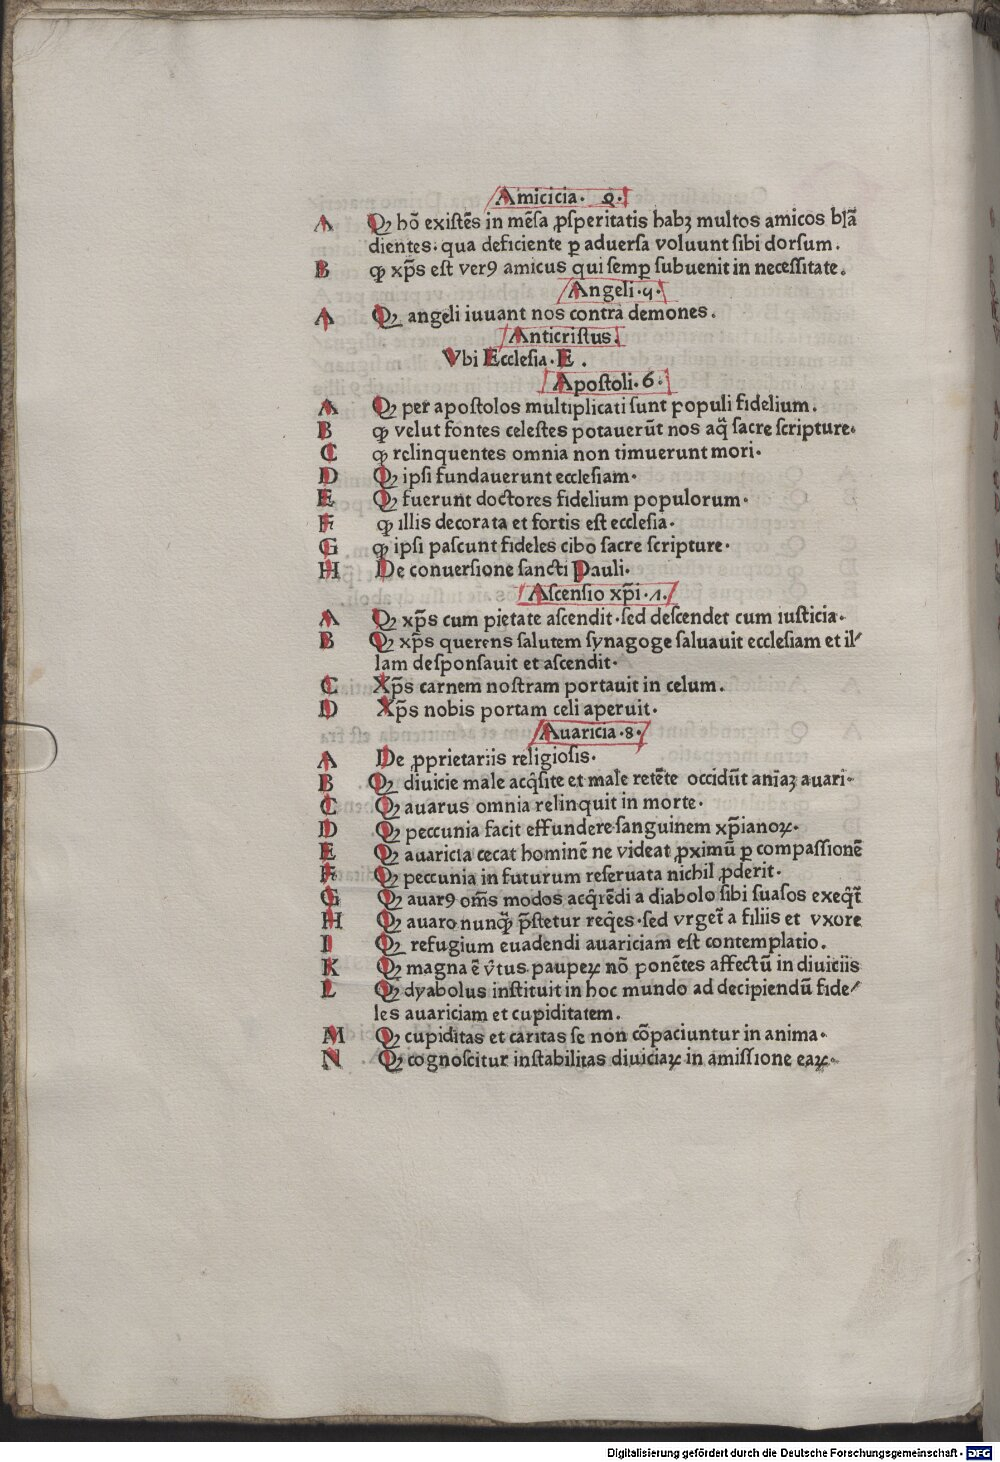 Amicicia. 2.
A Qꝫ hō existēs in mēsa ꝓsperitatis habꝫ multos amicos blā
dientes: qua deficiente ꝑ aduersa voluunt sibi dorsum.
B ꝙ xp̄s est verꝰ amicus qui semꝑ subuenit in necessitate.
Angeli.4.
A Qꝫ angeli iuuant nos contra demones.
Anticristus.
Vbi Ecclesia.E.
Apostoli.6.
A Qꝫ per apostolos multiplicati sunt populi fidelium.
B ꝙ velut fontes celestes potauerūt nos aq̄ sacre scripture.
C ꝙ relinquentes omnia non timuerunt mori.
D Qꝫ ipsi fundauerunt ecclesiam.
E Qꝫ fuerunt doctores fidelium populorum.
F ꝙ illis decorata et fortis est ecclesia.
G ꝙ ipsi pascunt fideles cibo sacre scripture.
H De conuersione sancti Pauli.
Ascensio xp̄i.1.
A Qꝫ xp̄s cum pietate ascendit.sed descendet cum iusticia.
B Qꝫ xp̄s querens salutem synagoge saluauit ecclesiam et il/
lam desponsauit et ascendit.
C Xp̄s carnem nostram portauit in celum.
D Xp̄s nobis portam celi aperuit.
Auaricia.8.
A De ꝓprietariis religiosis.
B Qꝫ diuicie male acq̇site et male retēte occidūt aīaꝫ auari.
C Qꝫ auarus omnia relinquit in morte.
D Qꝫ peccunia facit effundere sanguinem xp̄ianoꝝ.
E Qꝫ auaricia cecat hominē ne videat ꝓximū ꝑ compassionē
F Qꝫ peccunia in futurum reseruata nichil ꝓderit.
G Qꝫ auarꝰ om̄s modos acq̇rēdi a diabolo sibi suasos exeq̇t̄
H Qꝫ auaro nunq̄ꝫ p̄stetur req̇es.sed vrget̄ a filiis et vxore
I Qꝫ refugium euadendi auariciam est contemplatio.
K Qꝫ magna ē v̇tus paupeꝝ nō ponētes affectū in diuiciis
L Qꝫ dyabolus instituit in hoc mundo ad decipiendū fide/
les auariciam et cupiditatem.
M Qꝫ cupiditas et caritas se non cōpaciuntur in anima.
N Qꝫ cognoscitur instabilitas diuiciaꝝ in amissione eaꝝ.
Digitalisierung gefördert durch die Deutsche Forschungsgemeinschaft - DFG